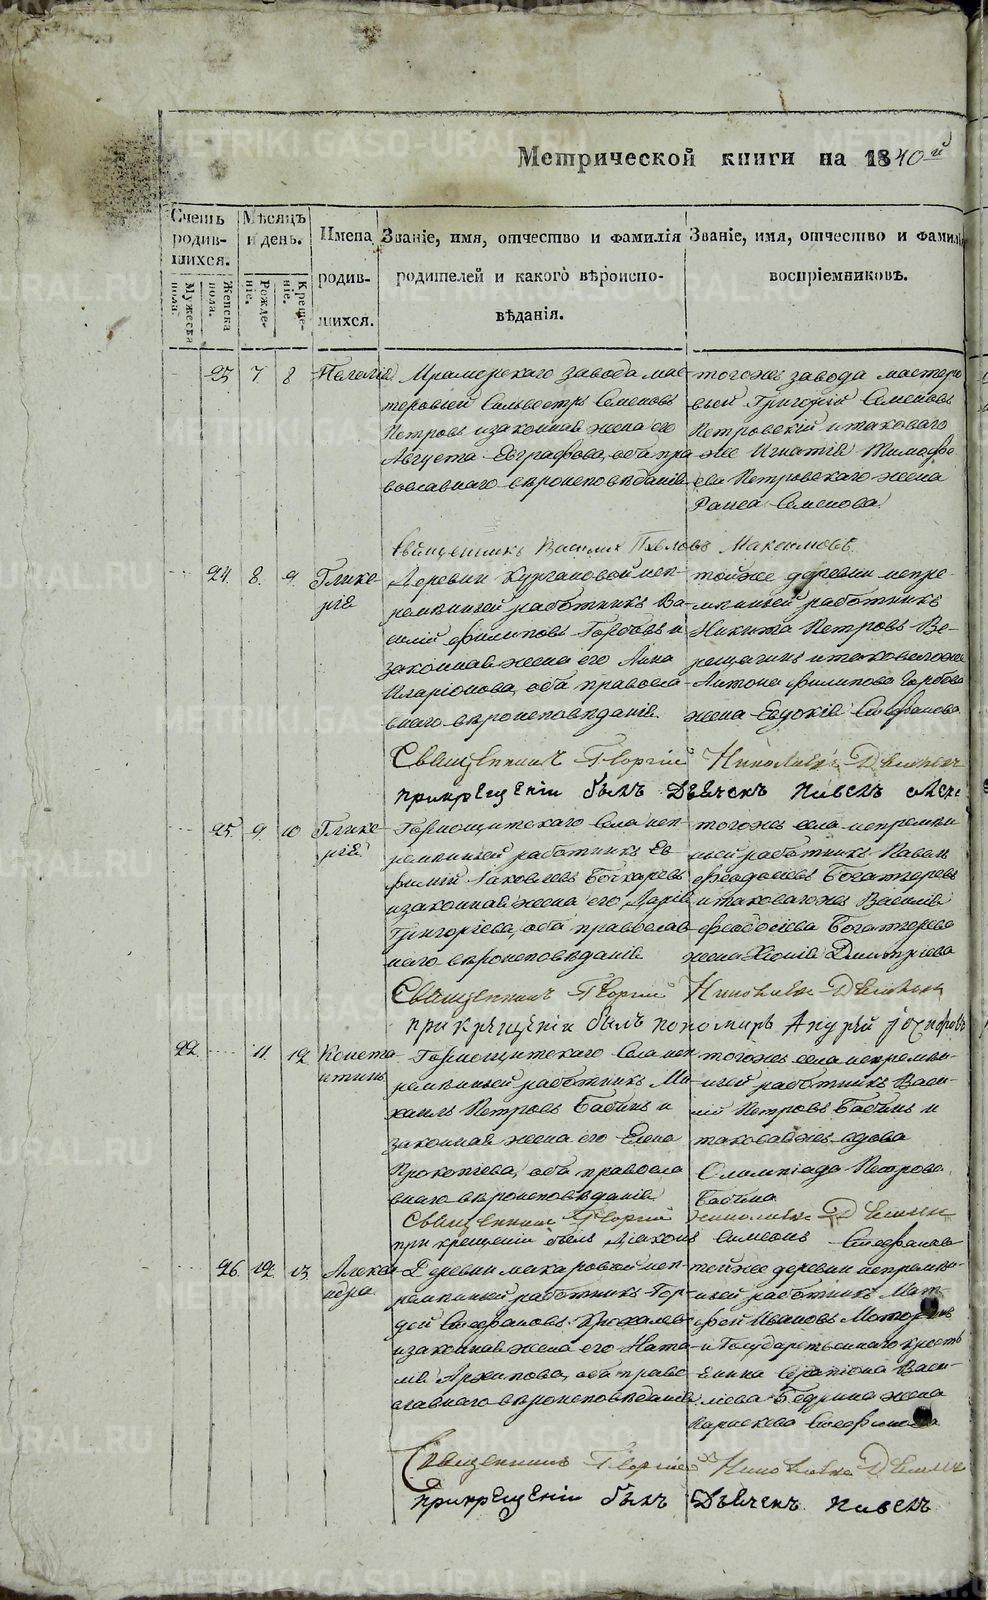 Метрической книги на 1840й
Счетъ родившихся.
Мужеска пола.
Женска пола.
Мѣсяцъ и день.
Рожденіе.
Крещеніе.
Имена родившихся.
Званіе, имя, отчество и фамилія родителей и какого вѣроисповѣданія.
Званіе, имя, отчество и фамилія воспріемниковъ.
23 7 8 Пелагія
Мраморскаго завода мас-
теровый Сильвестръ Семеновъ
Петровъ и законная жена его
Августа Евграфова, оба пра
вославнаго вѣроисповѣданія
тогожъ завода мастеро
вый Григорій Семеновъ
Петровскій и таковаго
же Игнатія Тимофе
ева Петровскаго жена
Раиса Семенова.
Священникъ Василій Павловъ Максимовъ.
24. 8. 9. Глике-
рія
Деревни Кургановой неп-
ремѣнный работникъ Ва-
силій Филиповъ Горбовъ и
законная жена его Анна
Иларіонова, оба правосла-
внаго вѣроисповѣданія.
тойже деревни непре-
мѣнный работникъ
Никита Петровъ Ве-
рещагинъ и таковагоже
Антона Филипова Горбова
жена Евдокія Стефанова
Священникъ Георгій Николаевъ
при крещеніи былъ Дьячекъ Павелъ
25. 9. 10 Глике-
рія
Горнощитскаго села неп-
ремѣнный работникъ Ев
фимій Іаковлевъ Бочкаревъ
и законная жена его Дарія
Григоріева, оба православ
наго вѣроисповѣданія
тогожъ села непремѣн
ный работникъ Павелъ
Феодосіевъ Богатыревъ
и таковагожъ Василія
Феодосіева Богатырева
жена Хіонія Димитріева
Священникъ Георгій Николаевъ
при крещеніи былъ пономарь Андрей
22. 11. 12 Конста-
нтинъ
Горнощитскаго села неп
ремѣнный работникъ Ми-
хаилъ Петровъ Бабинъ и
законная жена его Елена
Прокопіева, оба правосла
внаго вѣроисповѣданія
тогожъ села непремѣн-
ный работникъ Васи-
лій Петровъ Бабинъ и
таковаяжъ вдова
Олимпіада Петрова
Бабина
Священникъ Георгій Николаевъ
при крещеніи былъ Діаконъ Симеонъ Стефановъ
26. 12. 13 Алекса
ндра
Деревни макаровой неп-
ремѣнный работникъ Гор-
дей Стефановъ Крохалевъ
и законная жена его Ната-
лія Архипова, оба право
славнаго вѣроисповѣданія
тойже деревни непремѣн-
ный работникъ Мат-
фей Ивановъ
и Государственнаго кресть
янина Серапіона Васи-
лиева Бедрина жена
Параскева Стефанова
Священникъ Георгій Николаевъ
при крещеніи былъ Дьячекъ Павелъ
METRIKI.GASO-URAL.RU